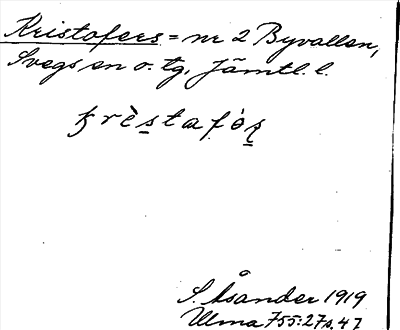 Kristofers = nr 2 Byvallen,
Svegs sn o. tg, Jämtl. l.
krèstafòs̠
S. Åsander 1919
Ulma 755:27 s. 47